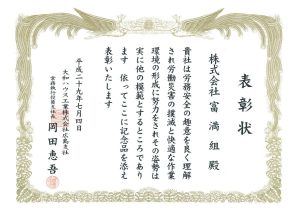 表彰状
株式会社 富満組 殿
貴社は労務安全の趣意を良く理解
され労働災害の撲滅と快適な作業
環境の形成に努力をされその姿勢は
実に他の模範とするところであり
ます 依ってここに記念品を添え
表彰いたします
平成二十九年七月四日
大和ハウス工業株式会社広島支社
岡田恵吾